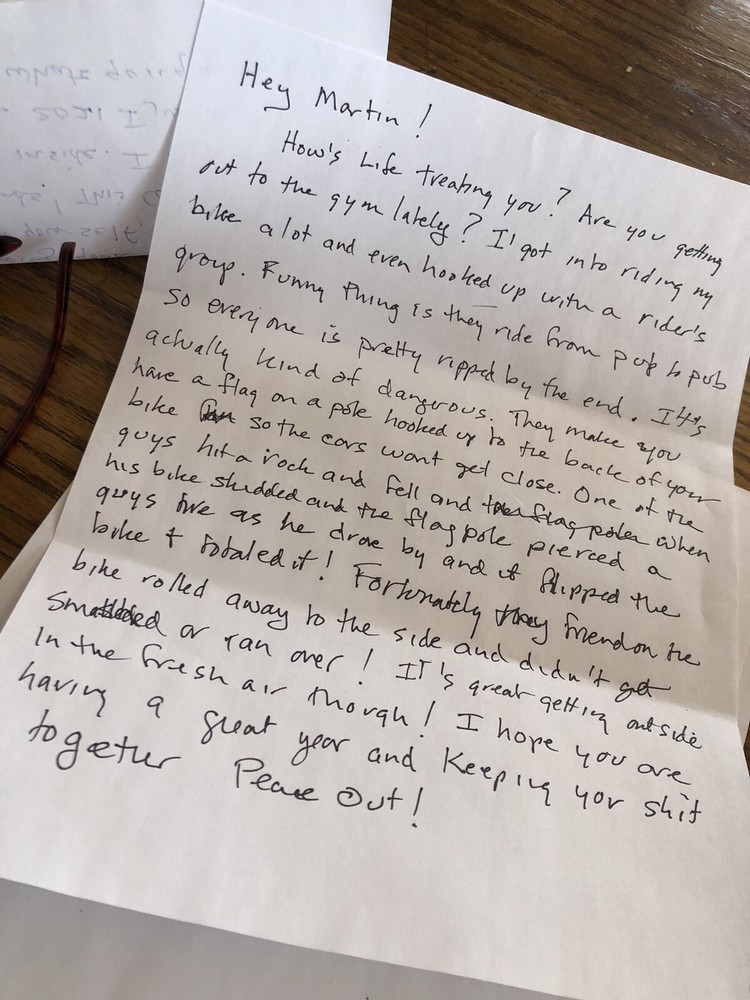 whats going
2021 I
inside. I
This
Hey Martin!
How's Life treating you? Are you getting
out to the gym lately? I got into riding my
bike a lot and even hooked up with a rider's
group. Funny thing is they ride from pub to pub
so everyone is pretty ripped by the end. It's
actually kind of dangerous. They make you
have a flag on a pole hooked up to the back of your
bike so the cars wont get close. One of the
guys hit a rock and fell and when
his bike skidded and the flag pole pierced a
guys tire as he drove by and it flipped the
bike & totaled it! Fortunately my friend on the
bike rolled away to the side and didn't get
or ran over! IT's great getting outside
In the fresh air though! I hope you are
having a great year and Keeping your shit
together Peace Out!